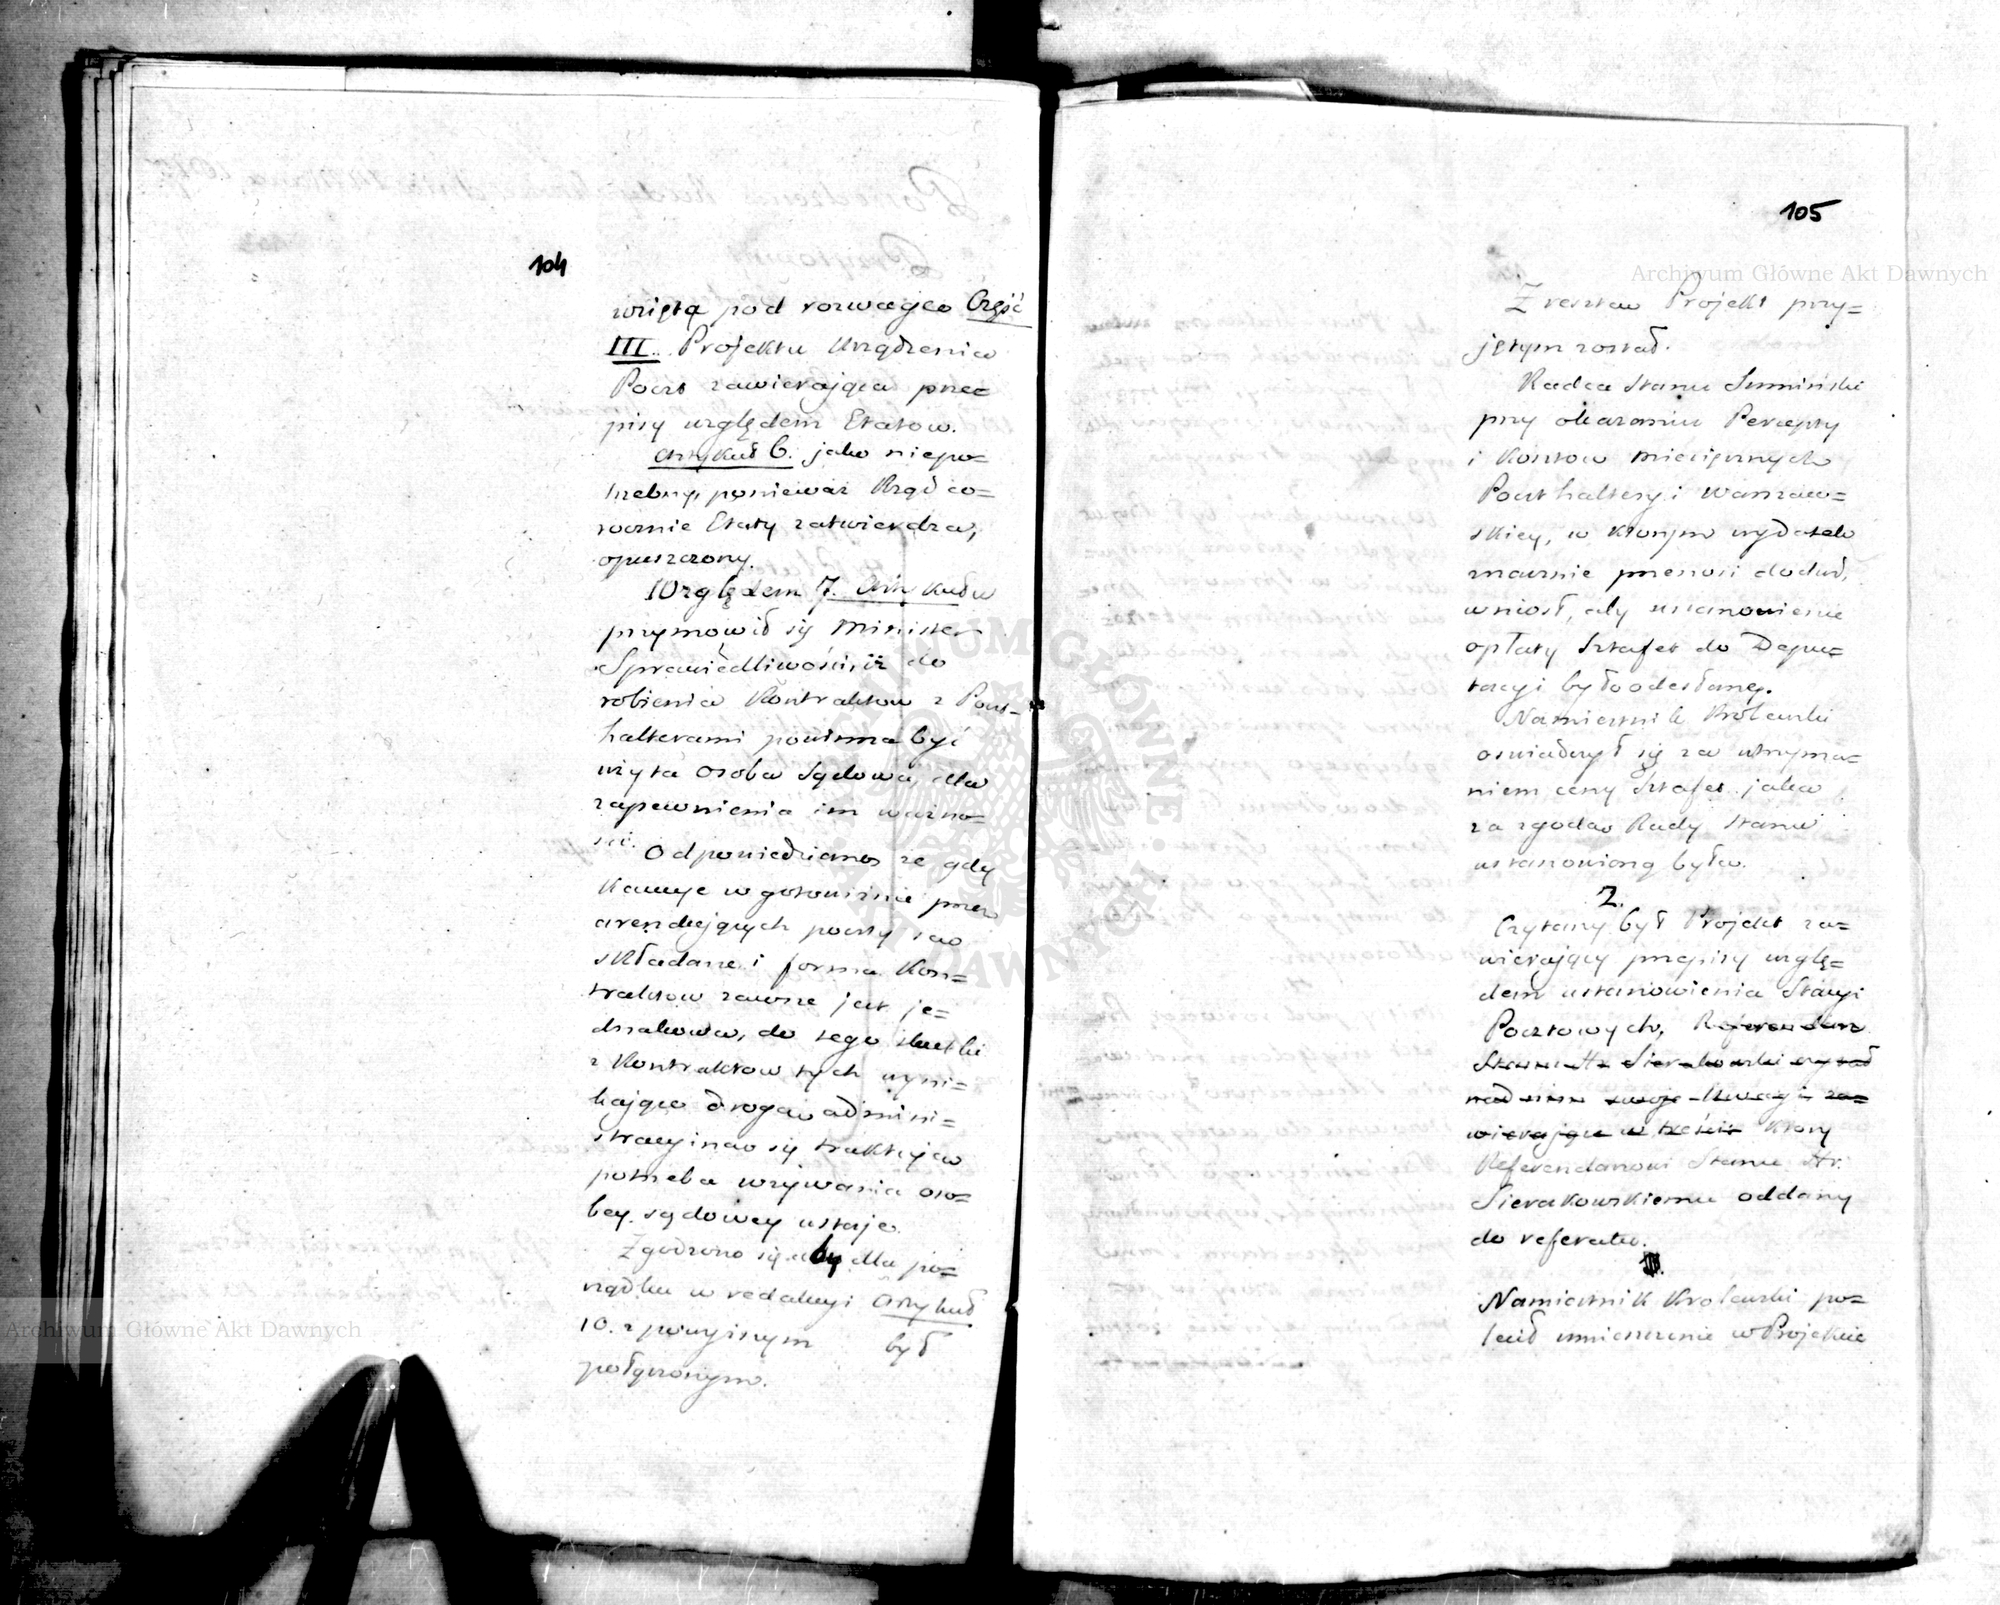 104
wziętą pod rozwagę Część
III. Projektu Urządzenia
Poczt zawierająca prze=
pisy względem Etatow.
Artykuł 6. jako niepo=
trzebny, ponieważ Rząd co=
rocznie Etaty zatwierdza,
opuszczony.
Względem 7. Artykułu
przymowił się Minister
Sprawiedliwości iż do
robienia Kontraktow z Pocz=
halterami powinna być
użyta osoba Sądowa, dla
zapewnienia im ważno=
ści.
Odpowiedziano że gdy
Kaucye w gotowiźnie przez
arendujących poczty są
składane i forma Kon=
traktow zawsze jest je=
dnakowa, do tego skutki
z Kontraktow tych wyni=
kające drogą admini=
stracyiną się traktują
potrzeba używania oso=
bey sądowey ustaje.
Zgodzono się aby dla po=
rządku w redakcyi Artykuł
10. z powyższym był
połączonym.
105
Archiwum Główne Akt Dawnych
Zresztą Projekt przy=
jętym został.
Radca Stanu Sumiński
przy okazaniu Percepty
i Kosztow miesięcznych
Poczthalteryi Warszaw=
skiey, w ktorym wydatek
znacznie przenosi dochod,
wniosł, aby ustanowienie
opłaty Sztafet do Depu=
tacyi było odesłane.
Namiestnik Krolewski
oswiadczył się za utrzyma=
niem ceny Sztafet jaka
za zgodą Rady Stanu
ustanowioną była.
2.
Czytany był Projekt za=
wierający przepisy wzglę=
dem ustanowienia Stacyi
Pocztowych, Referendarz
Stanu Hr. Sierakowski czytał
nad nim swoje Uwagi za=
wierające w treści ktory
Referendarzowi Stanu Hr.
Sierakowskiemu oddany
do referatu.
Namiestnik Krolewski po=
lecił umieszczenie w Projekcie
Archiwum Główne Akt Dawnych
ARCHIWUM GŁÓWNE AKT DAWNYCH